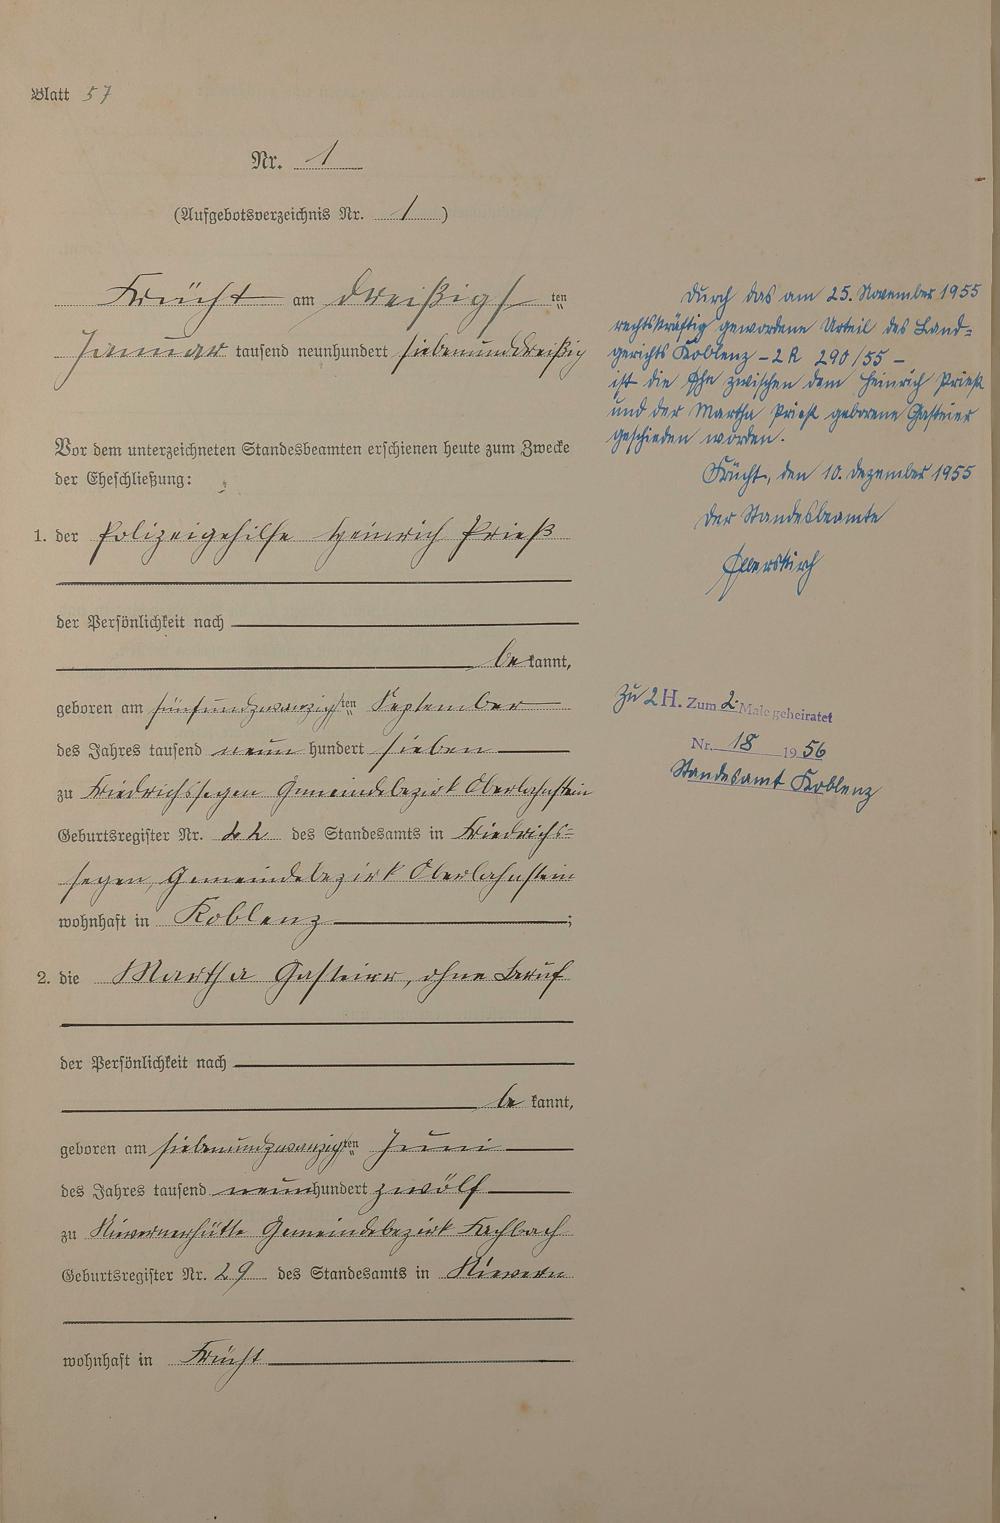 Blatt 57
Nr. 1
(Aufgebotsverzeichnis Nr. 1)
Frücht am dreißigsten
Januar tausend neunhundert siebenunddreißig
Vor dem unterzeichneten Standesbeamten erschienen heute zum Zwecke
der Eheschließung:
1. der Polizeigehilfe Heinrich Prieß
der Persönlichkeit nach
bekannt,
geboren am fünfundzwanzigsten September
des Jahres tausend neun hundert sieben
zu Friedrichssegen Gemeindebezirk Oberlahnstein
Geburtsregister Nr. 44 des Standesamts in Friedrichs=
segen, Gemeindebezirk Oberlahnstein
wohnhaft in Koblenz;
2. die Martha Gasteier, ohne Beruf
der Persönlichkeit nach
bekannt,
geboren am siebenundzwanzigsten Juni
des Jahres tausend neunhundert zwölf
zu Nievernerhütte Gemeindebezirk Fachbach
Geburtsregister Nr. 29 des Standesamts in Nievern
wohnhaft in Frücht
Durch das am 25. November 1955
rechtskräftig gewordene Urteil des Land=
gerichts Koblenz - 2 R 290/55 -
ist die Ehe zwischen dem Heinrich Prieß
und der Martha Prieß geborene Gasteier
geschieden worden.
Frücht, den 10. Dezember 1955
Der Standesbeamte
Zu 2 H. Zum 2. Male geheiratet
Nr. 18 1956
Standesamt Koblenz